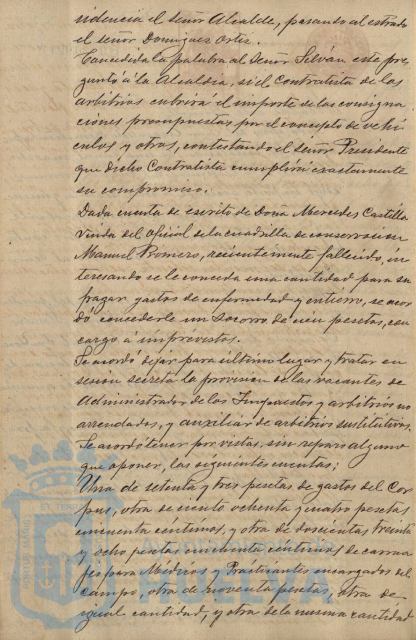 sidencia el señor Alcalde, pasando al estrado
el señor Dominguez Ortiz.
Concedida la palabra al Señor Selván este pre-
guntó á la Alcaldía, si el Contratista de los
arbitrios cubrirá el importe de las consigna
ciones presupuestas por el concepto de vehi
culos y otros, contestando el señor Presidente
que dicho Contratista cumplirá exactamente
su compromiso.
Dada cuenta de escrito de Doña Mercedes Castilla
Viuda del oficial de la cuadrilla de conservacion
Manuel Romero, recientemente fallecido, in
teresando se le conceda una cantidad para su
fragar gastos de enfermedad y entierro, se acor
dó concederle un socorro de cien pesetas, con
cargo á imprevistos.
Se acordó dejar para último lugar y tratar en
sesion secreta la provision de las vacantes de
Administrador de los Impuestos y arbitrios no
arrendados, y auxiliar de arbitrios sustitutivos.
Se acordó tener por vistas, sin reparo alguno
que oponer, las siguientes cuentas;
Una de setenta y tres pesetas de gastos del Cor
pus, otra de ciento ochenta y cuatro pesetas
cincuenta centimos, y otra de doscientas treinta
y ocho pesetas cincuenta centimos de carrua
jes para Médicos y Practicantes encargados del
campo, otra de noventa pesetas, otra de
igual cantidad, y otra de la misma cantidad
HUELVA